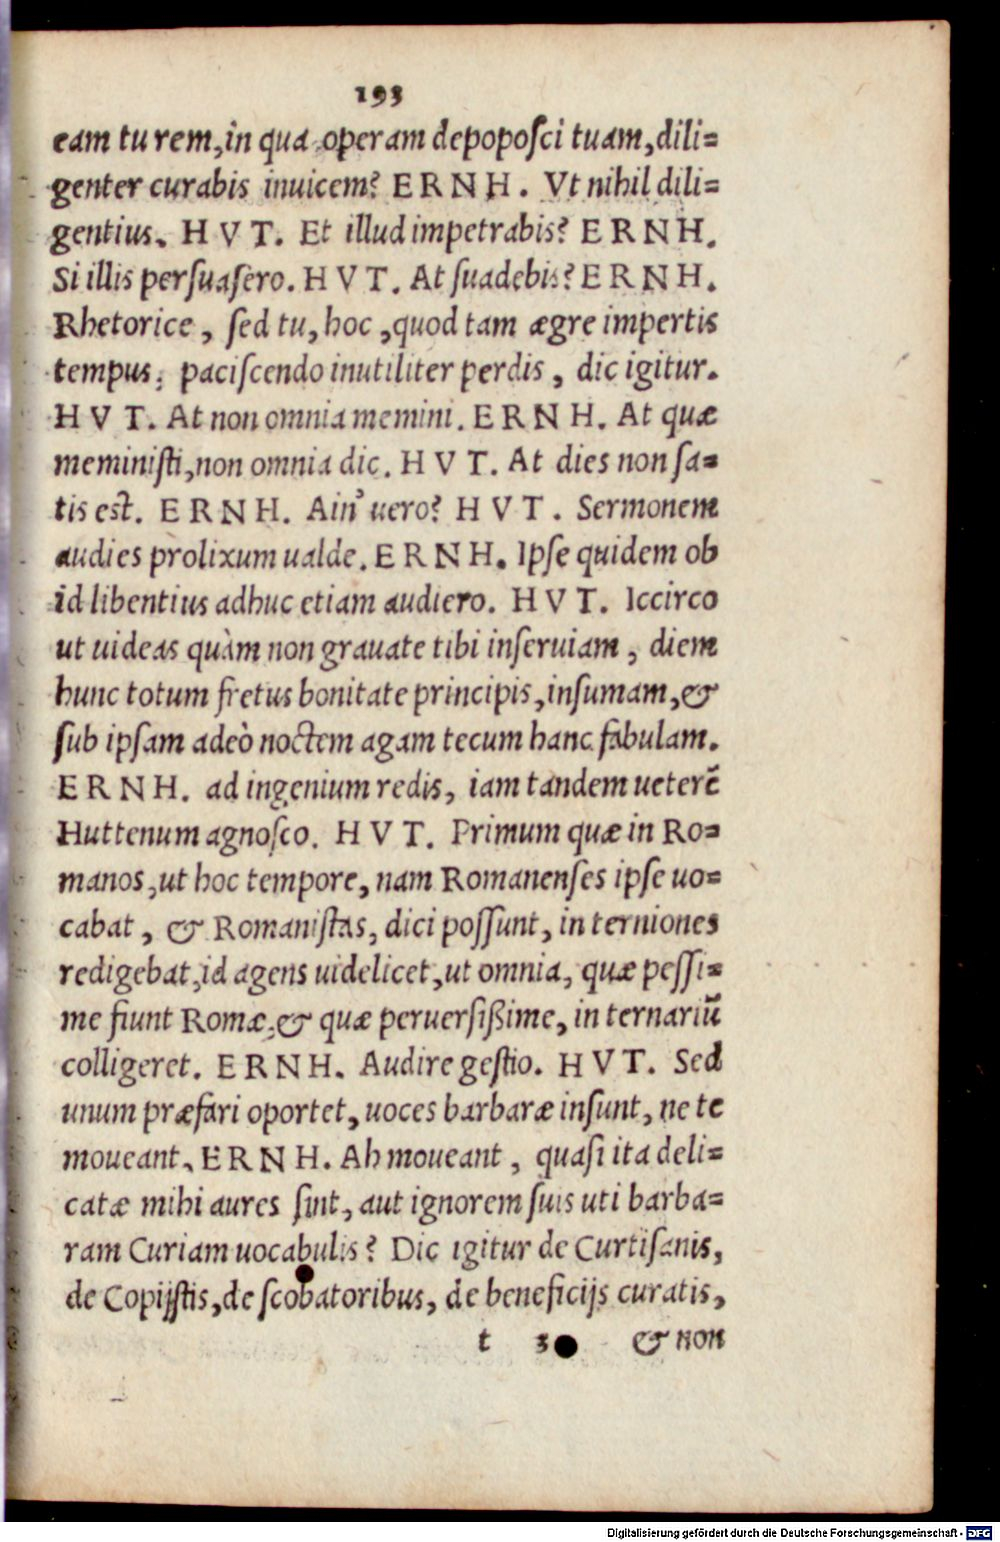 193
eam tu rem, in qua operam depoposci tuam, dili=
genter curabis inuicem? ERNH. Vt nihil dili=
gentius. HVT. Et illud impetrabis? ERNH.
Si illis persuasero. HVT. At suadebis? ERNH.
Rhetorice, sed tu, hoc, quod tam ægre impertis
tempus, paciscendo inutiliter perdis, dic igitur.
HVT. At non omnia memini. ERNH. At quæ
meministi, non omnia dic. HVT. At dies non sa=
tis est. ERNH. Ain' uero? HVT. Sermonem
audies prolixum ualde. ERNH. Ipse quidem ob
id libentius adhuc etiam audiero. HVT. Iccirco
ut uideas quàm non grauate tibi inseruiam, diem
hunc totum fretus bonitate principis, insumam, &
sub ipsam adeò noctem agam tecum hanc fabulam.
ERNH. ad ingenium redis, iam tandem ueterē
Huttenum agnosco. HVT. Primum quæ in Ro=
manos, ut hoc tempore, nam Romanenses ipse uo=
cabat, & Romanistas, dici possunt, in terniones
redigebat, id agens uidelicet, ut omnia, quæ pessi=
me fiunt Romæ, & quæ peruersißime, in ternariū
colligeret. ERNH. Audire gestio. HVT. Sed
unum præfari oportet, uoces barbaræ insunt, ne te
moueant. ERNH. Ah moueant, quasi ita deli=
catæ mihi aures sint, aut ignorem suis uti barba=
ram Curiam uocabulis? Dic igitur de Curtisanis,
de Copijstis, de scobatoribus, de beneficijs curatis,
t 3 & non
Digitalisierung gefördert durch die Deutsche Forschungsgemeinschaft - DFG